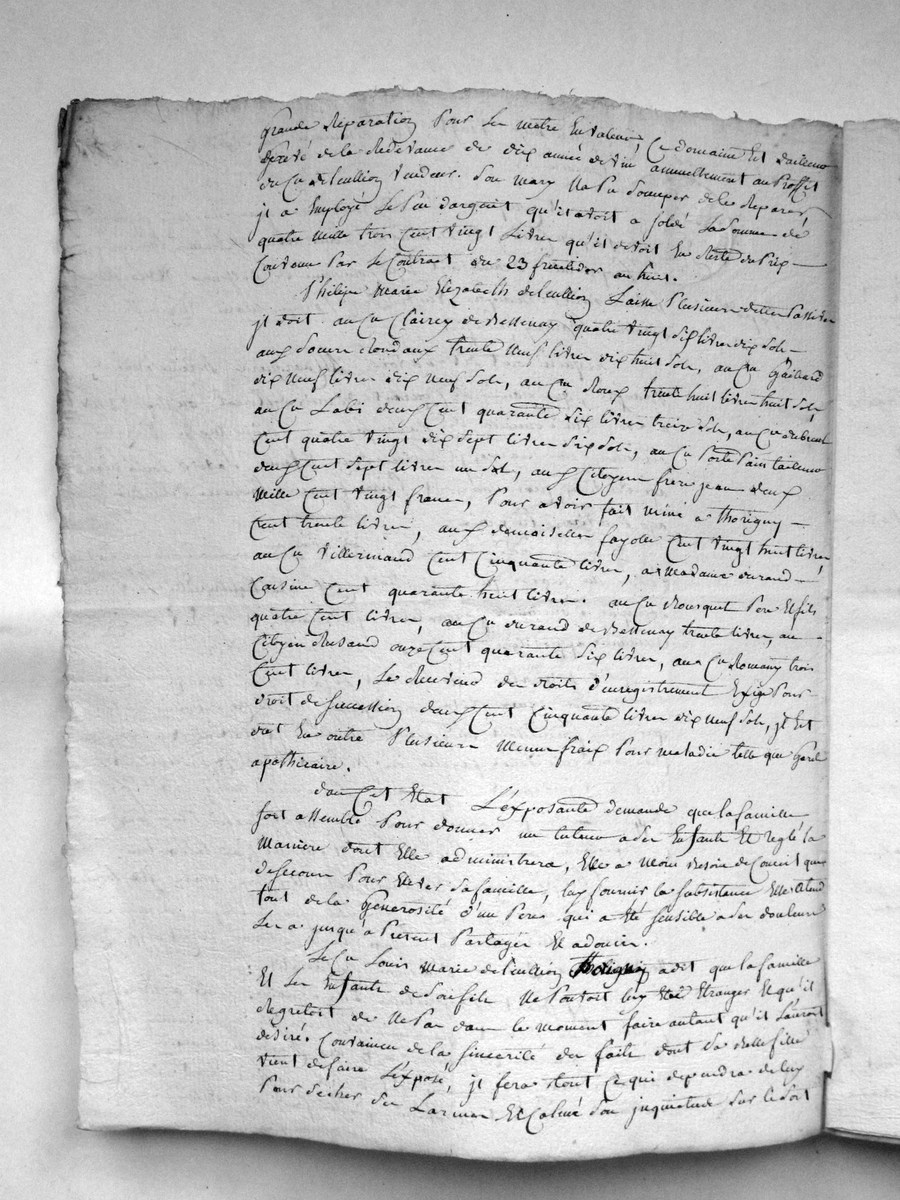 grande Reparation Pour les metre En valeur, Ce domaine Est d'ailleurs
Grevé de la Redevance de dix année de vin annuellement au Proffit
du Cn Delcullion vendeur. Son mary Na Pu s'ocuper de les Reparer,
jl a Employé Le Peu d'argent qu'il avoit a soldé La Somme de
quatre mille trois Cent vingt Livres qu'il devoit En Reste du Prix
Convenu Par le Contract du 23 frutidor an huit.
Philipe Marie Elezabeth delcullion Laisse Plusieurs dettes Passives
jl doit au Cn Clairey de Bessenay quatre vingt dix livres dix sols
aux Soeurs Rondaux trente Neuf livres dix huit sols, au Cn gaibard
dix Neuf livres dix Neuf sols, au Cn Roux trente huit livres huit sols
au Cn Labi deux Cent quarante Six livres treize sols, au Cn dubreul
Cent quatre vingt dix Sept livres Six sols, au Cn Portepain tailleur
deux Cent Sept livres un Sol, aux Citoyens frere jean deux
mille Cent vingt francs, Pour avoir fait miné a thorigny
Cent trente livres, aux demoiselles fayolle Cent vingt huit livres
au Cn villermaud Cent Cinquante livres, a Madame durand
Cousine Cent quarante huit livres. au Cn Rousquet Pere Et fils
quatre Cent livres, au Cn durand de Bessenay trente livres, au
Citoyen Rusand onze Cent quarante Six livres, au Cn Romany trois
Cent livres, Le Receveur des droits d'enregistrement Exige Pour
droit de succession deux Cent Cinquante livres dix Neuf sols, jl Est
dut En outre Plusieurs menus fraix Pour maladie telle que garde
apothicaire.
dans Cet Etat L'exposante demande que la famille
soit assemblé Pour donner un tuteur a Ses Enfants Et reglé la
Maniere dont Elle administrera, Elle a Moins Besoin de Conseil que
de secours Pour Elever Sa famille, luy fournir la subsistance Elle attend
tout de la generosité d'un Pere qui a Eté Sensible a Ses douleurs
Les a jusqu'a Present Partager Et adoucir.
Le Cn Louis Marie delcullion thorigny a dit que la famille
Et les Enfants de Son fils Ne Pouvoit luy Etre Etranger Et qu'il
Regretoit de Ne Pas dans le Moment faire autant qu'il L'auroit
desiré. Convaincu de la sincerité des faits dont Sa Belle fille
vient de faire L'exposé, jl fera tout Ce qui dependra de luy
Pour Secher Ses Larmes Et Calmé Son jnquietude Sur le Sort